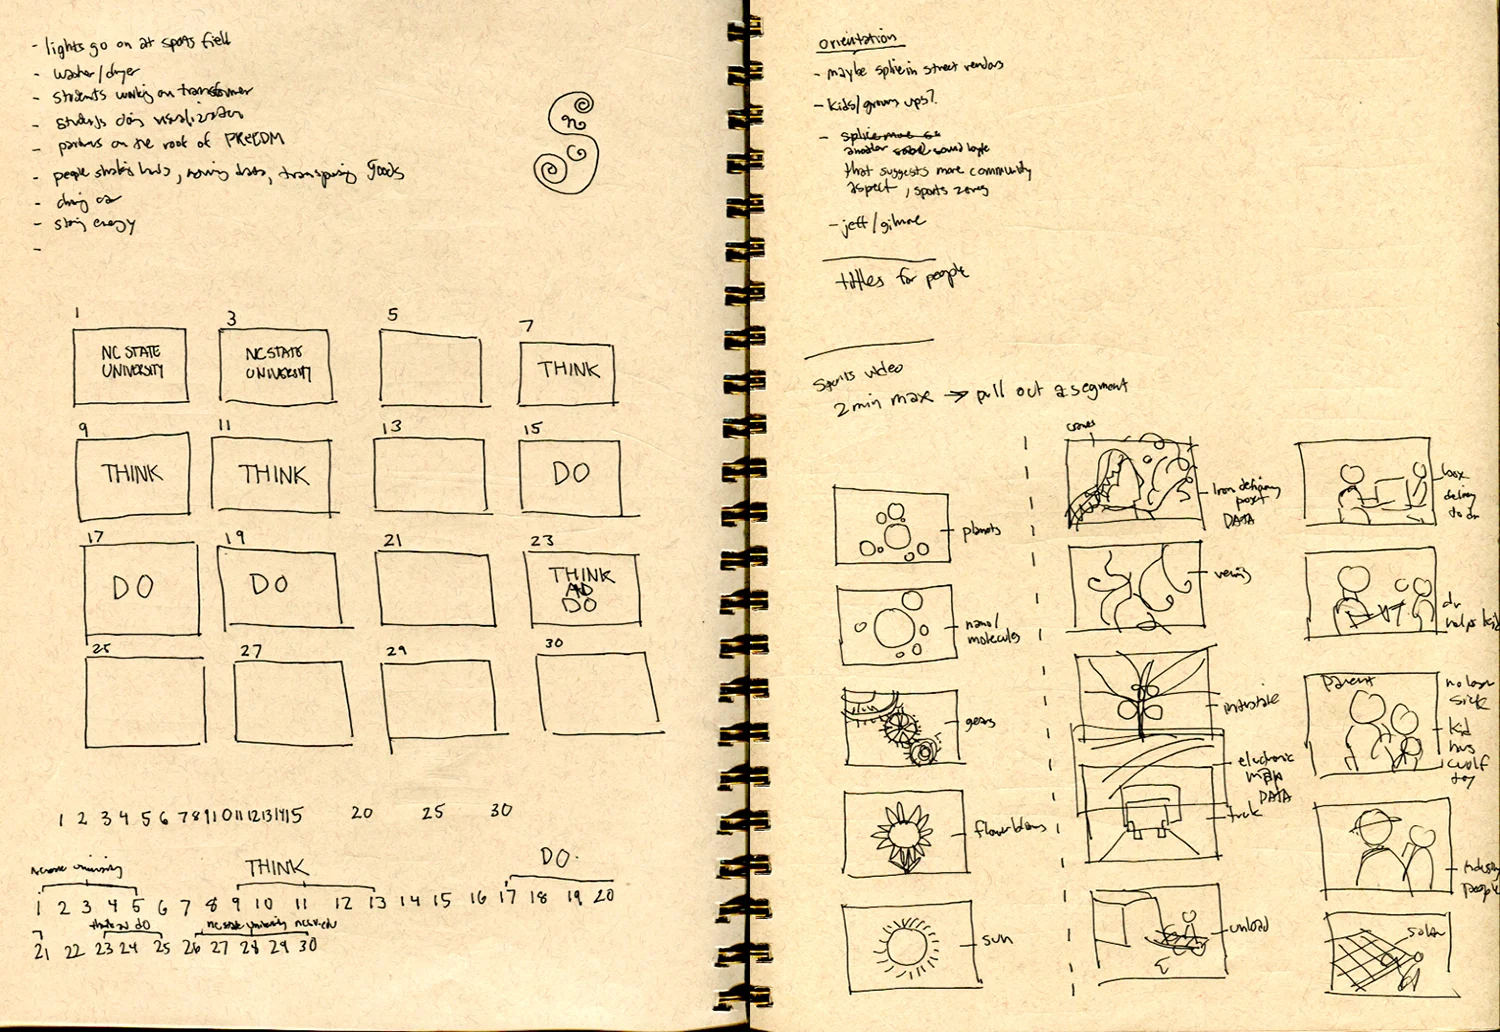 - lights go on at sports field
- washer/dryer
- students working on transformer
- students doing visualization
- partners on the roof of FREEDM
- people shaking hands, moving data, transporting goods
- driving car
- storing energy
-
1 3 5 7
NC STATE UNIVERSITY
NC STATE UNIVERSITY
THINK
9 11 13 15
THINK
THINK
DO
17 19 21 23
DO
DO
THINK
AND
DO
25 27 29 30
1 2 3 4 5 6 7 8 9 10 11 12 13 14 15 20 25 30
NC State University THINK DO.
1 2 3 4 5 6 7 8 9 10 11 12 13 14 15 16 17 18 19 20
think and do nc state university ncsu.edu
21 22 23 24 25 26 27 28 29 30
orientation
- maybe splice in street vendors
- kids/grown ups?
- splice more
another sound byte
that suggests more community
aspect, sports zones
- jeff/gilmore
titles for people
sports video
2 min max → pull out a segment
planets
nano/
molecules
gears
flower blooms
sun
DATA
veins
electronic
DATA
truck
unload
box
dr
helps kid
parent
no longer
sick
kid
has
wolf
toy
industry
people
solar